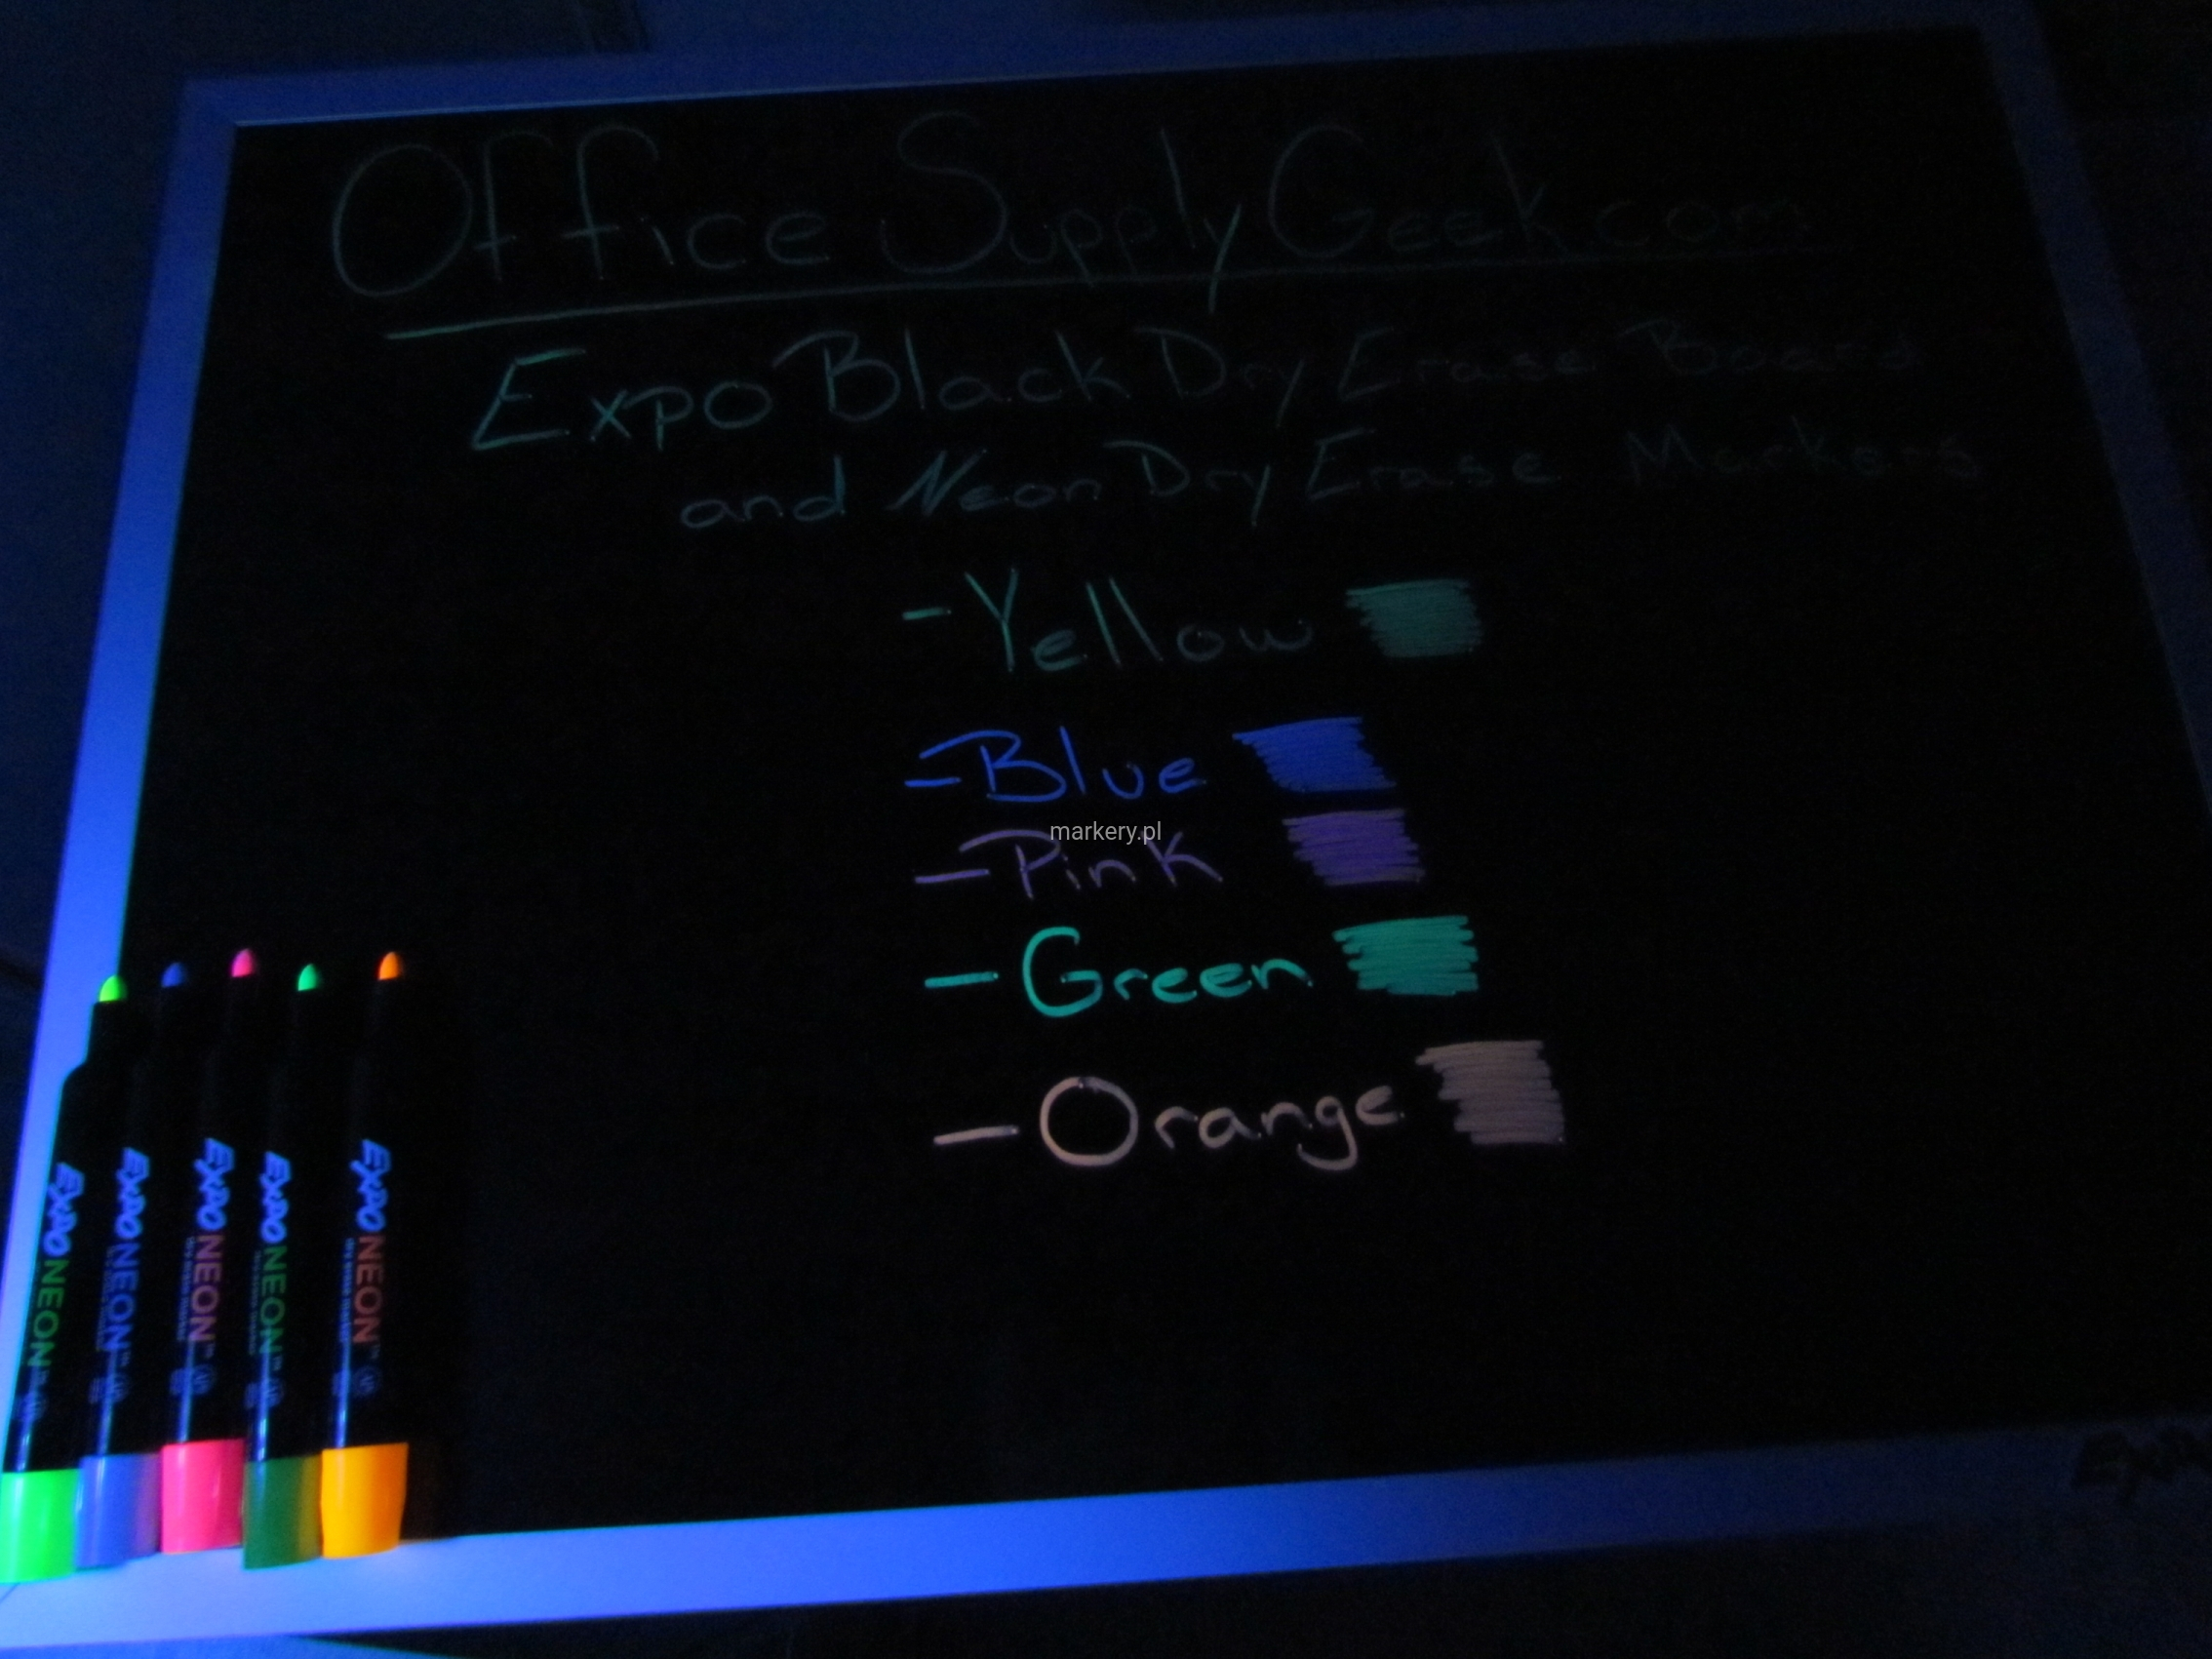 Office Supply Geek.com
Expo Black Dry Erase Board
and Neon Dry Erase Markers
- Yellow
- Blue
markery.pl
- Pink
- Green
- Orange
EXPO NEON™
EXPO NEON™
EXPO NEON™
EXPO NEON™
EXPO NEON™
Expo